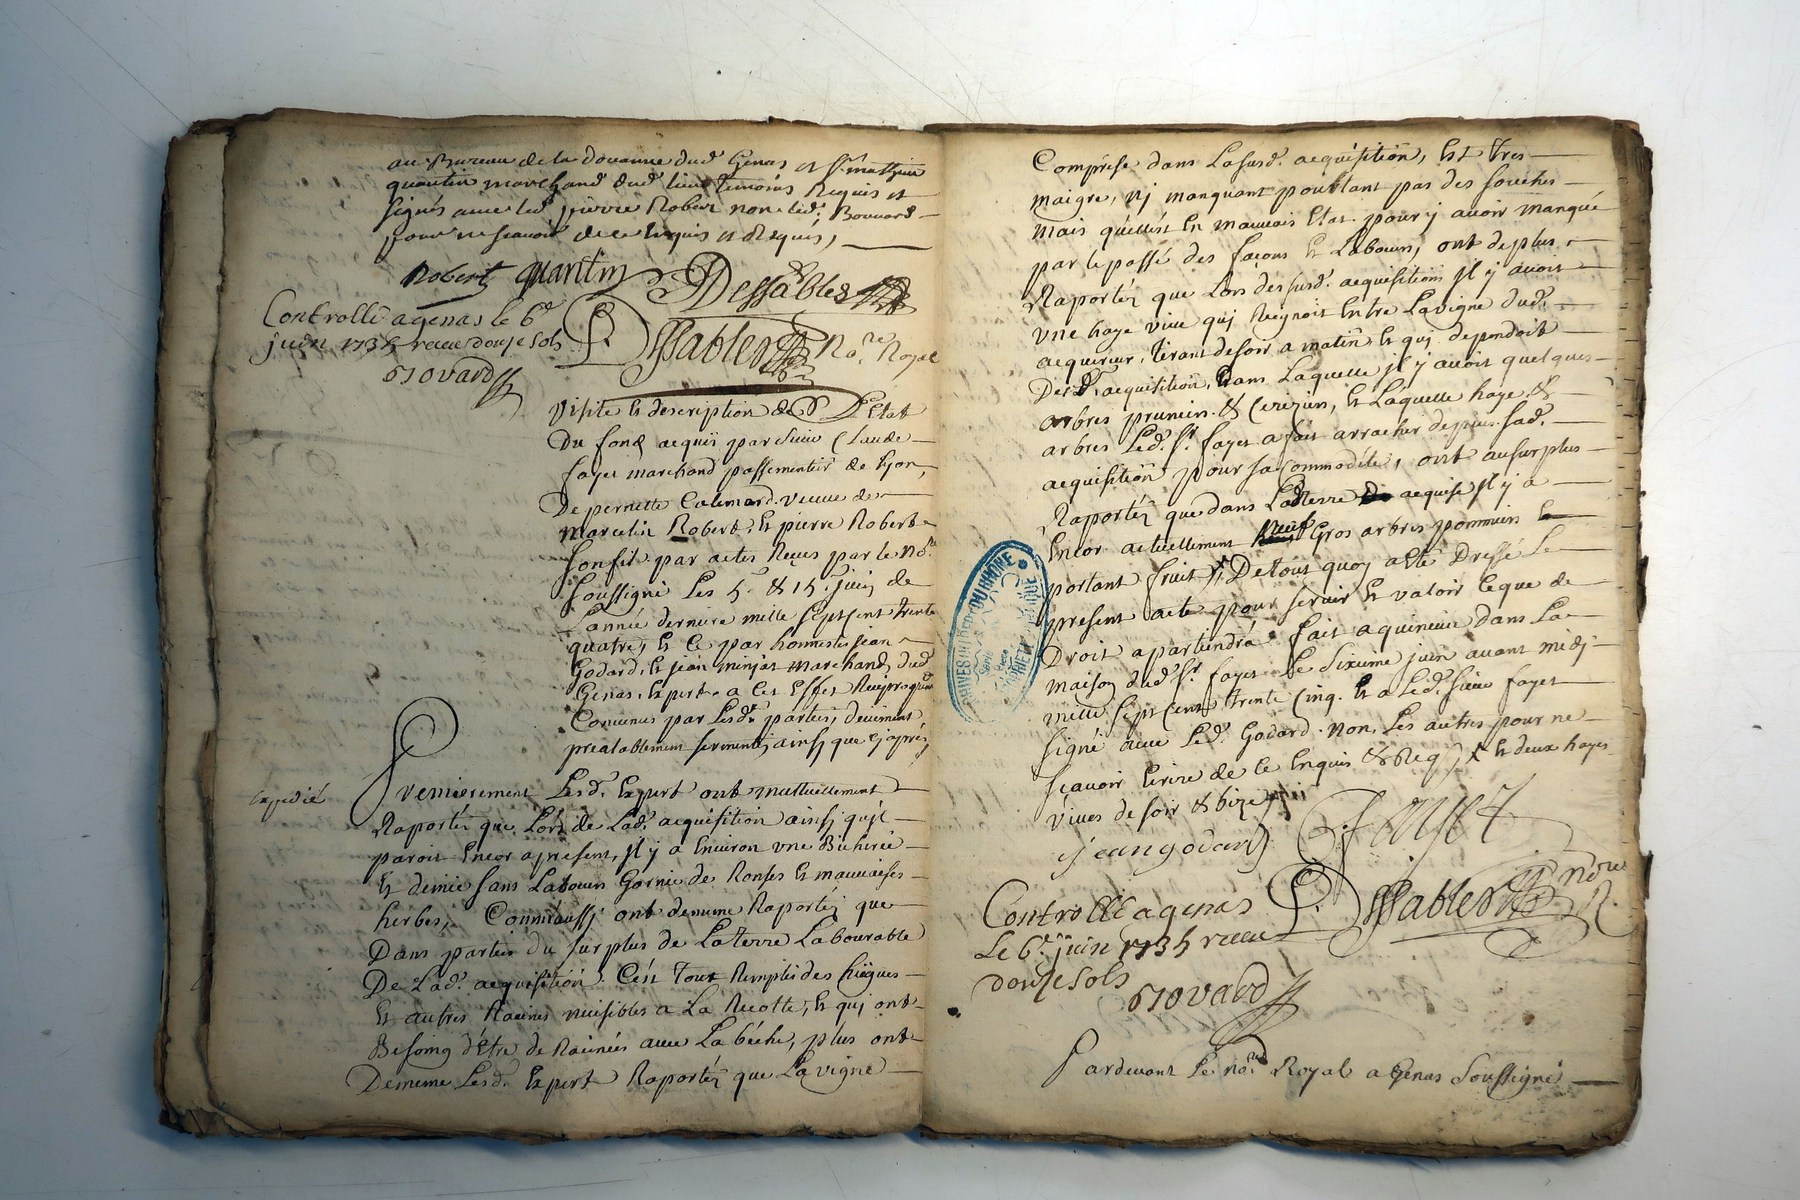 au Bureau de la douanne dud. Genas et Sr. mathieu
quantin marchand dud. lieu temoins Requis et
signés avec led. pierre Robert non lad. Bouvard
pour ne scavoir de ce Enquis et Requis,
Robert quantin Dessables
Controllé a genas le 6e
juin 1735 receu douze sols
Dessables No.re Royal
Bovard
Visite Et description de L'Etat
Du fond acquis par sieur Claude
fayet marchand passementier de Lyon,
De pernette Calemard veuve de
Marcelin Robert, Et pierre Robert
son fils par actes Reçus par le No.re
soussigné Les 5. & 15. juin de
L'année derniere mille sept cent trente
quatre, Et Ce par honnestes jean
Godard, Et jean minjat marchand dud.
Genas, Expert a Cet Effet
Convenus par Lesd. parties, deuement
prealablement sermentés ainsy que cy après,
Expedié
Premierement Lesd. Expert ont mutuellement
Raportés que Lors de Lad. acquisition ainsy qu'il
paroit Encor apresent, Il y a Environ une Bicherée
Et demie sans Labours Garnie de Ronses Et mauvaises
herbes, Comm'aussy ont dememe Raportés que
Dans parties du surplus de La terre Labourable
De Lad. acquisition. C'est Tout Remplis des
Et autres Racines nuisibles a La Recolte, Et qui ont
Besoing d'être deRacinés avec La béche, plus ont
Dememe Lesd. Expert Raportés que La vigne
Comprise dans La susd. acquisition, Est tres
maigre, n'y manquant pourtant pas des souches
mais qu'elle est En mauvais Etat pour y avoir manqué
par le passé des façons Et Labours, ont de plus
Raportés que Lors des susd. acquisitions Il y avoit
une haye vive quy Regnoit Entre La vigne dud.
acquereur, tirant de soir a matin Et quy dependoit
Desd. acquisition, Dans Laquelle Il y avoit quelques
arbres pruniers & Ceriziers, Et Laquelle haye, &
arbres Led. Sr. fayet a fait arracher depuis sad.
acquisition pour sa Commodité, ont au surplus
Raportés que dans Lad. terre acquise Il y a
Encor actuellement Gros arbres pommiers
portant fruit, De tout quoy a Eté Dressé Le
present acte pour servir Et valoir Ce que de
Droit apartiendra fait a quinieu dans La
maison dud. Sr. fayet Le Sixieme juin avant midy
mille sept Cent trente Cinq. Et a Led. sieur fayet
signé avec Led. Godard. Non Les autres pour ne
sçavoir Ecrire de Ce Enquis & Req. X Et deux hayes
vives de soir & bize
fayet
jean godard
Dessables No.re R.
Controllé a genas
Le 6e juin 1735 receu
douze sols
Bovard
Pardevant Le No.re Royal a Genas Soussigné